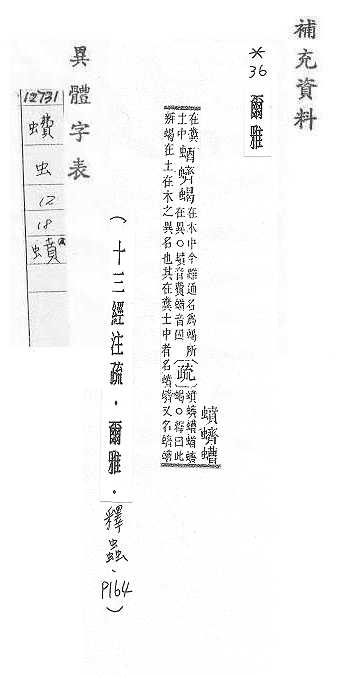 補充資料
*36 爾雅
蟦蠐螬
在糞土中蝤蠐蝎在木中今雖通名為蝎所在異○蟦音費蝤音囚疏蟦蠐螬蝤蠐蝎○釋曰此
辨蝎在土在木之異名也其在糞土中者名蟦蠐又名蠐螬
（十三經注疏．爾雅．釋蟲．P164）
異體字表
12731
虫
12
18
蟦